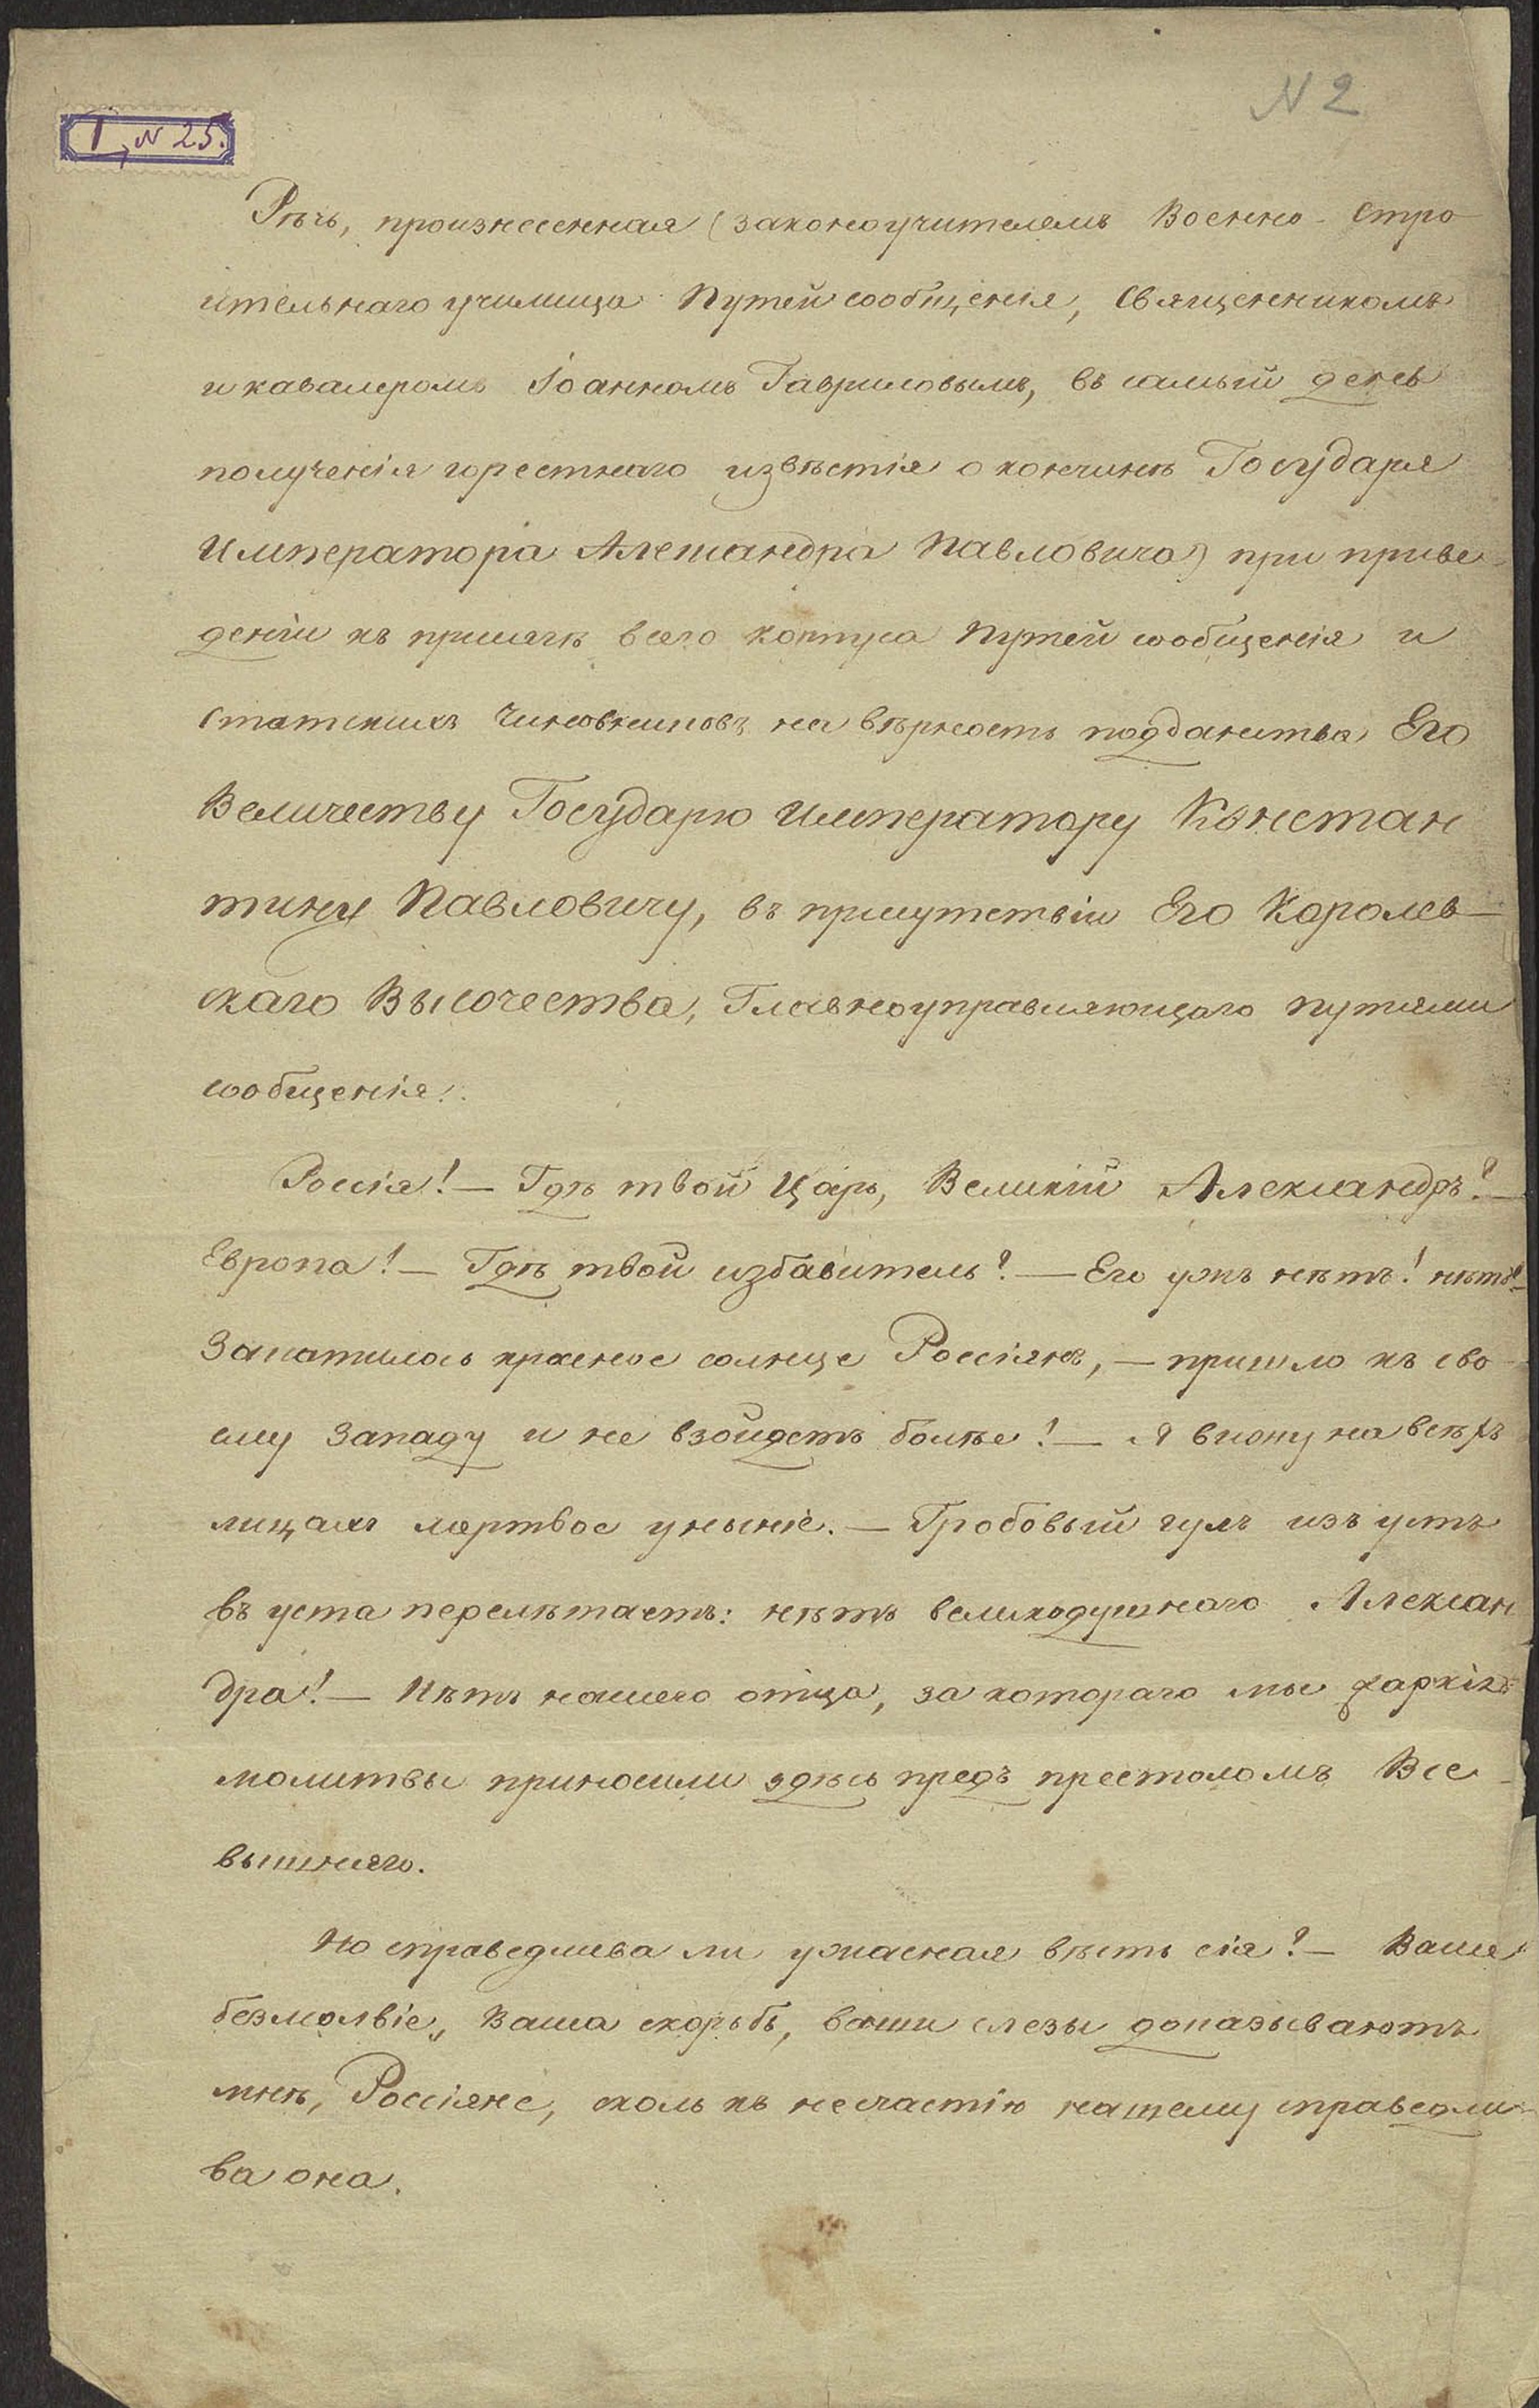 N 2
I, N 25.
Рѣчь, произнесенная (законоучителемъ Военно-Стро-
ительнаго училища Путей сообщенія, Священникомъ
и кавалеромъ Іоанномъ Гавриловымъ, въ самый день
полученія горестнаго извѣстія о кончинѣ Государя
Императора Александра Павловича) при приве-
деніи къ присягѣ всего корпуса Путей сообщенія и
статскихъ Чиновниковъ на вѣрность подданства Его
Величеству Государю Императору Констан
тину Павловичу, въ присутствіи Его Королев-
скаго Высочества, Главноуправляющаго путями
сообщенія.
Россія! — Гдѣ твой Царь, Великій Александръ? —
Европа! — Гдѣ твой избавитель? — Его ужъ нѣтъ! нѣтъ! —
Закатилось красное солнце Россіянъ, — пришло къ сво-
ему Западу и не взойдетъ болѣе! — Я вижу на всѣхъ
лицахъ мертвое уныніе. — Гробовый гулъ изъ устъ
въ уста перелѣтаетъ: нѣтъ великодушнаго Алексан
дра! — Нѣтъ нашего отца, за котораго мы жаркія
молитвы приносили здѣсь предъ престоломъ Все-
вышняго.
Но справедлива ли ужасная вѣсть сія? — Ваше
безмолвіе, Ваша скорьбь, ваши слезы доказываютъ
мнѣ, Россіяне, сколь къ несчастію нашему справедли-
ва она.